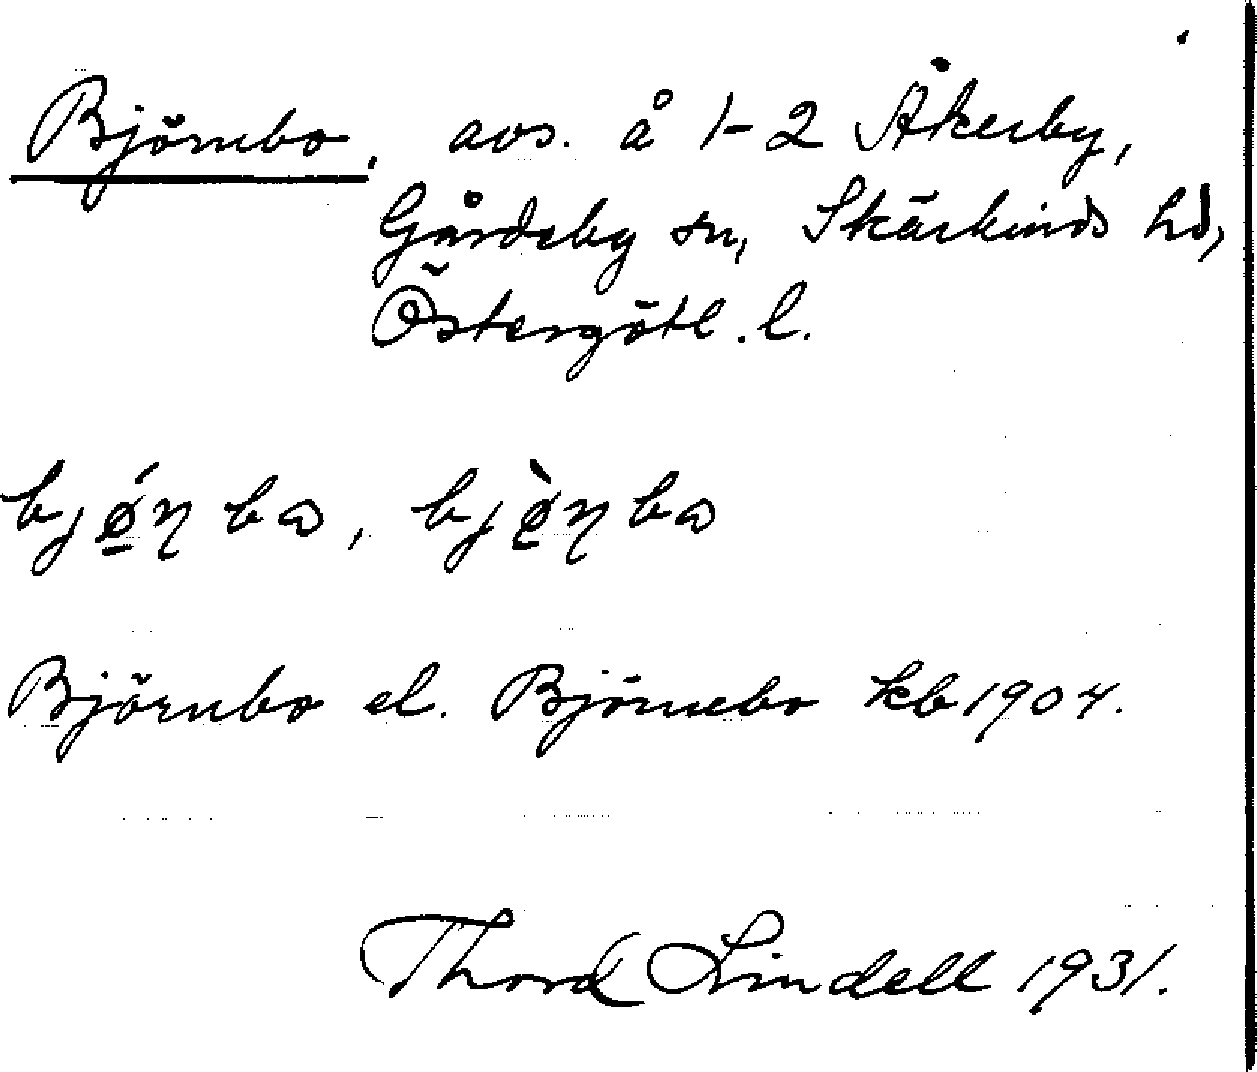 Björnbo, avs. å 1-2 Åkerby,
Gårdeby sn, Skärkinds hd,
Östergötl. l.
bjǿ̲ɳba, bjø̲̀ɳba
Björnbo el. Björnebo kb 1904.
Thord Lindell 1931.